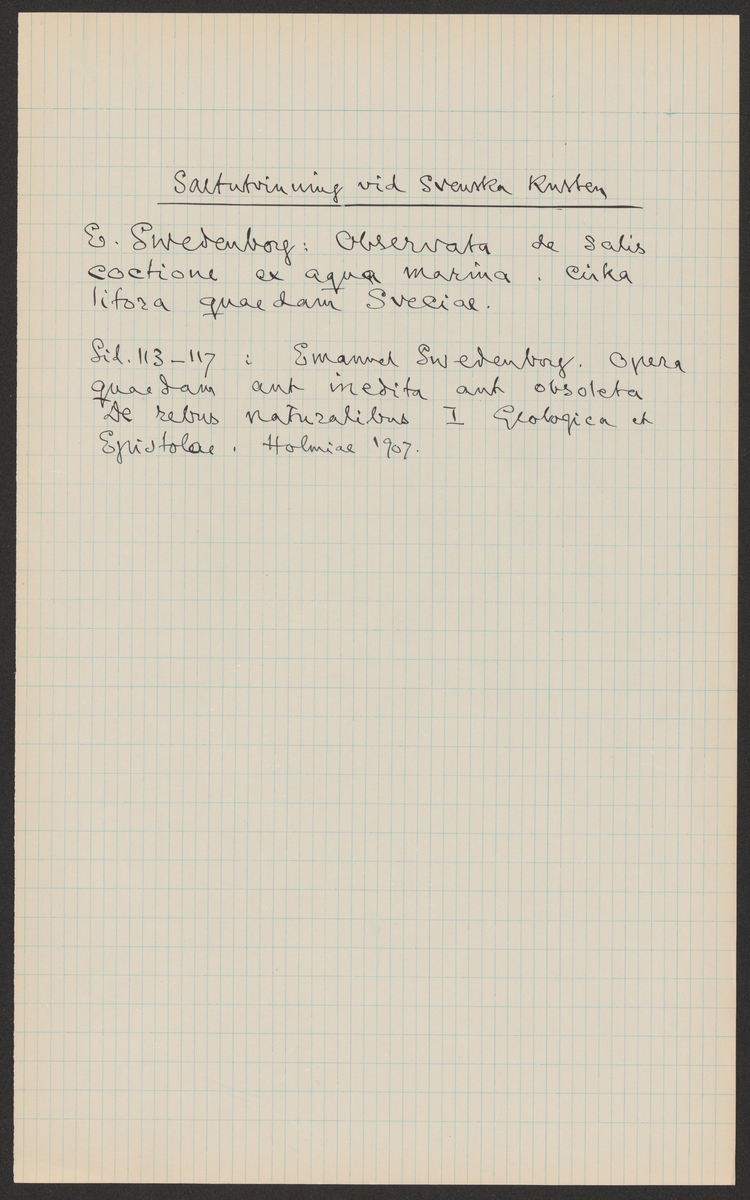 Saltutvinning vid Svenska Kusten
E. Swedenborg: Observata de salis
coctione ex aqua marina. cirka
litora quaedam Sveciae.
Sid. 113–117 : Emanuel Swedenborg. Opera
quaedam aut inedita aut obsoleta
De rebus naturalibus I Geologica et
Epistolae. Holmiae 1907.